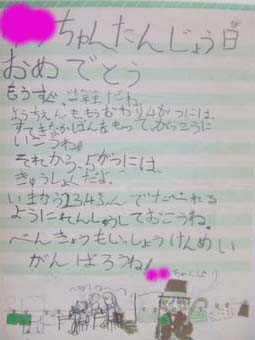 ちゃんたんじょう日
おめでとう
もうすぐ、 だね。
ようちえんももうおわり4がつには、
すてきなかばんをもってがっこうに
いこうね!
それから5がつには、
きゅうしょくだよ。
いまから たべれる
ようにれんしゅうしておこうね。
べんきょうもいっしょうけんめい
がんばろうね!
ちゃんより